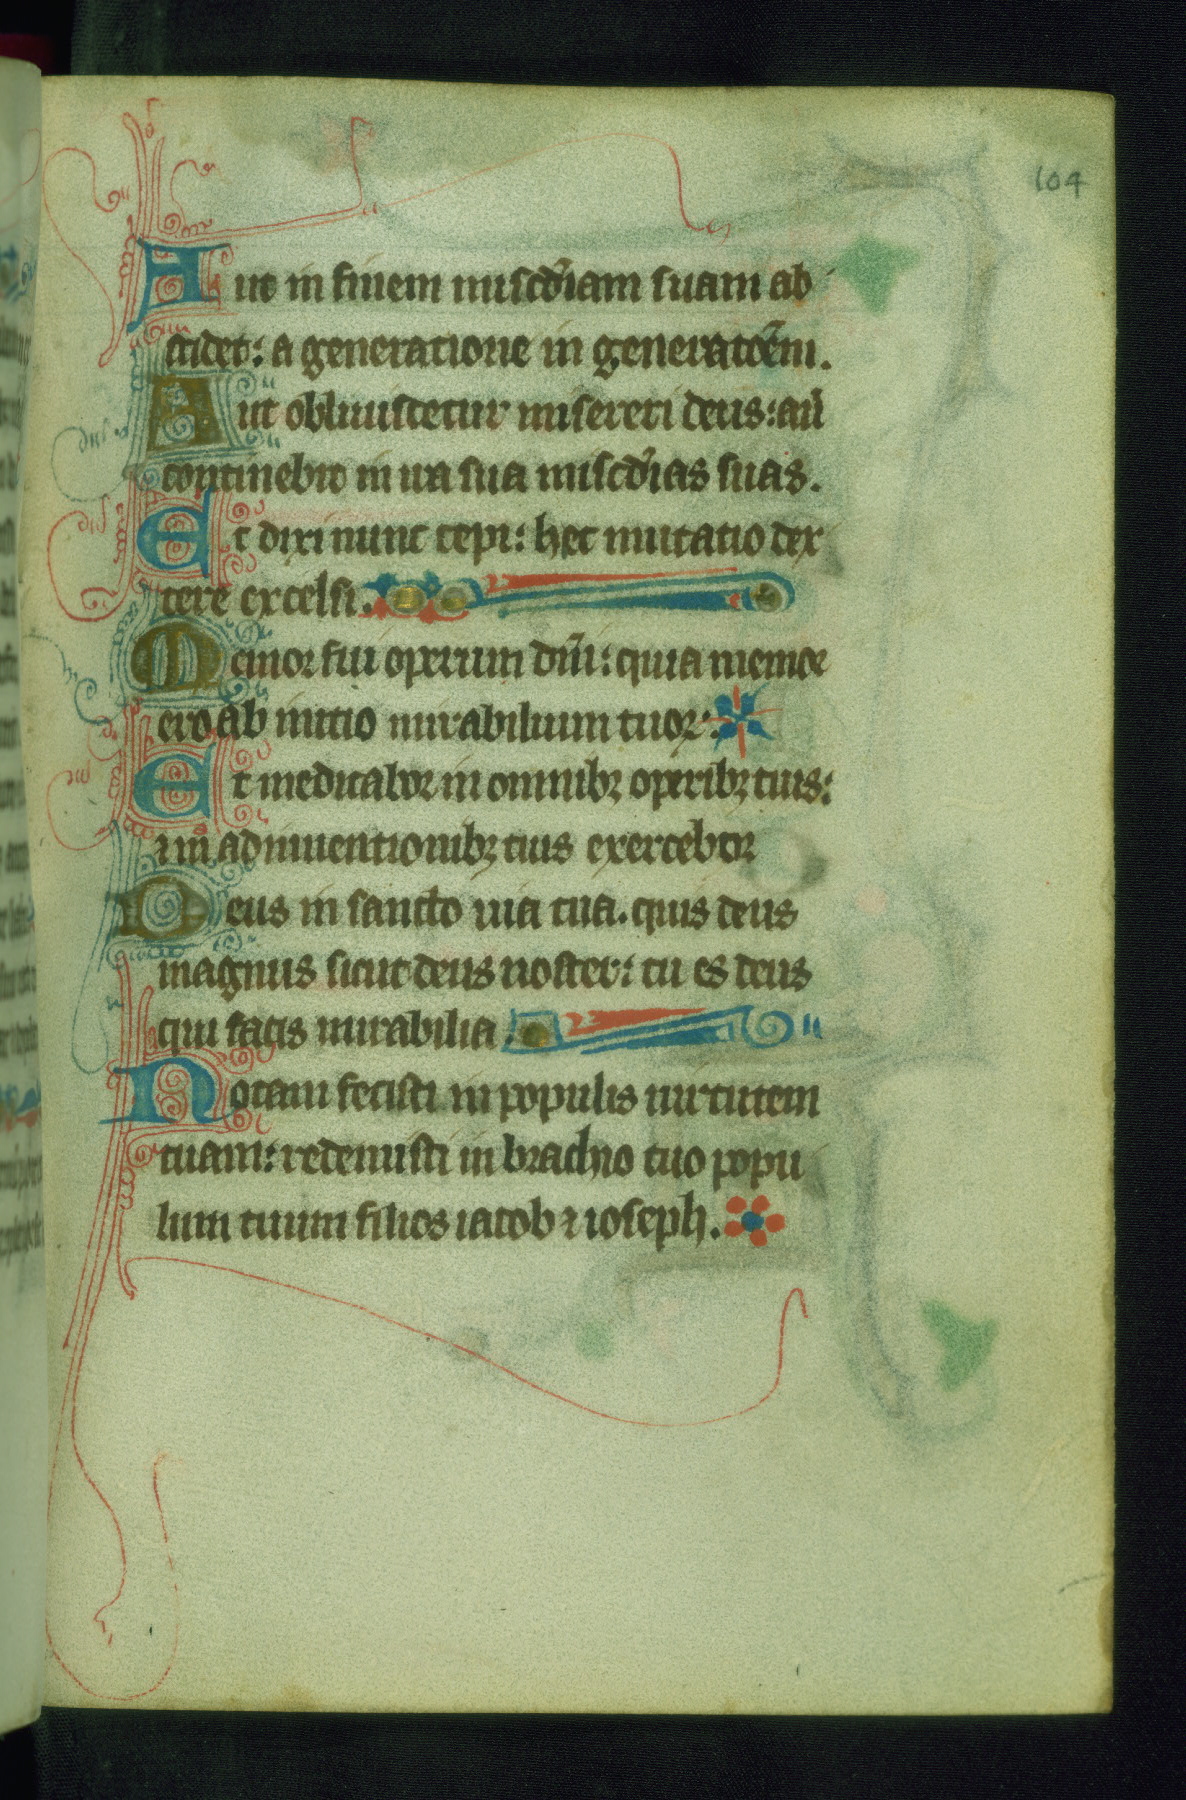 104
Aut in finem misc̄diam suam ab
scidet: a generatione in generatōem.
Aut obliuiscetur misereri deus: aut
continebit in ira sua misc̄dias suas.
Et dixi nunc cepi: hec mutatio dex
tere excelsi.
Memor fui operum dn̄i: quia memor
ero ab initio mirabilium tuoꝝ:
Et meditabor in omnibꝫ operibꝫ tuis:
⁊ in adinuentionibꝫ tuis exercebor
Deus in sancto uia tua. quis deus
magnus sicut deus noster: tu es deus
qui facis mirabilia.
Notam fecisti in populis uirtutem
tuam: redemisti in brachio tuo popu
lum tuum filios iacob ⁊ ioseph.